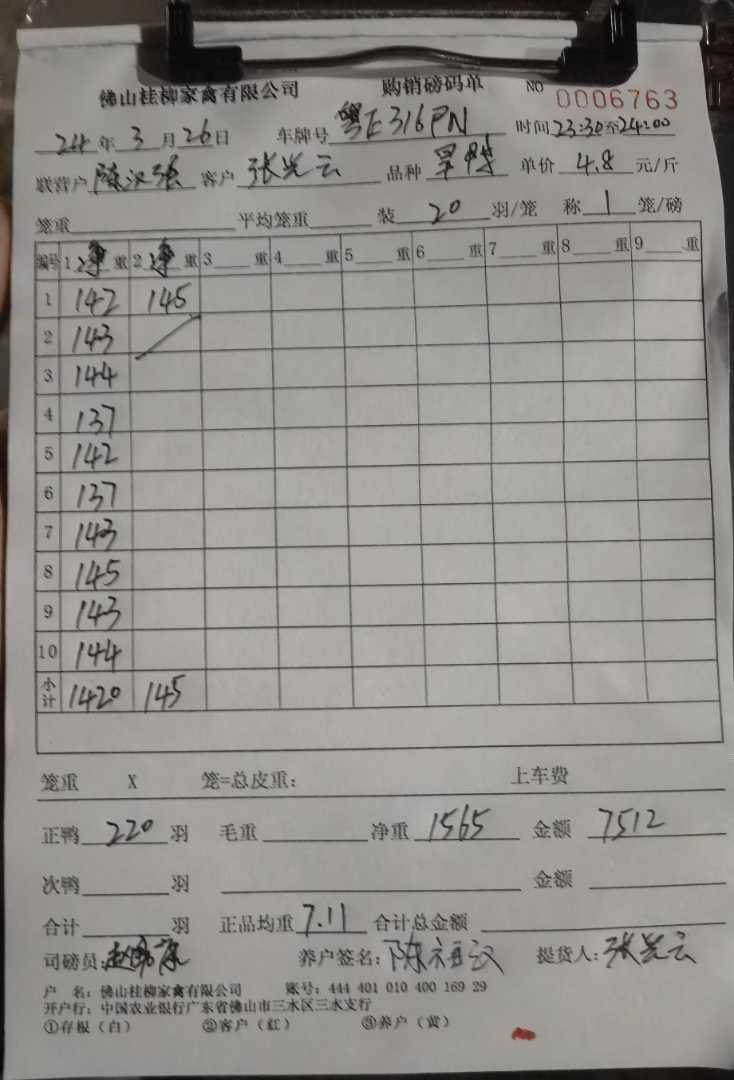 佛山桂柳家禽有限公司 购销磅码单 NO 0006763
24年3月26日 车牌号 粤E316PN 时间23:30至24:00
联营户 陈汉强 客户 张光云 品种 旱鸭 单价 4.8 元/斤
笼重 平均笼重 装 20 羽/笼 称 1 笼/磅
编号 1 净 重 2 净 重 3 重 4 重 5 重 6 重 7 重 8 重 9 重
1 142 145
2 143
3 144
4 137
5 142
6 137
7 143
8 145
9 143
10 144
小计 1420 145
笼重 X 笼=总皮重: 上车费
正鸭 220 羽 毛重 净重 1565 金额 7512
次鸭 羽 金额
合计 羽 正品均重 7.11 合计总金额
司磅员: 养户签名: 陈 汉 提货人: 张光云
户 名: 佛山桂柳家禽有限公司 账号: 444 401 010 400 169 29
开户行: 中国农业银行广东省佛山市三水区三水支行
①存根(白) ②客户(红) ③养户(黄)